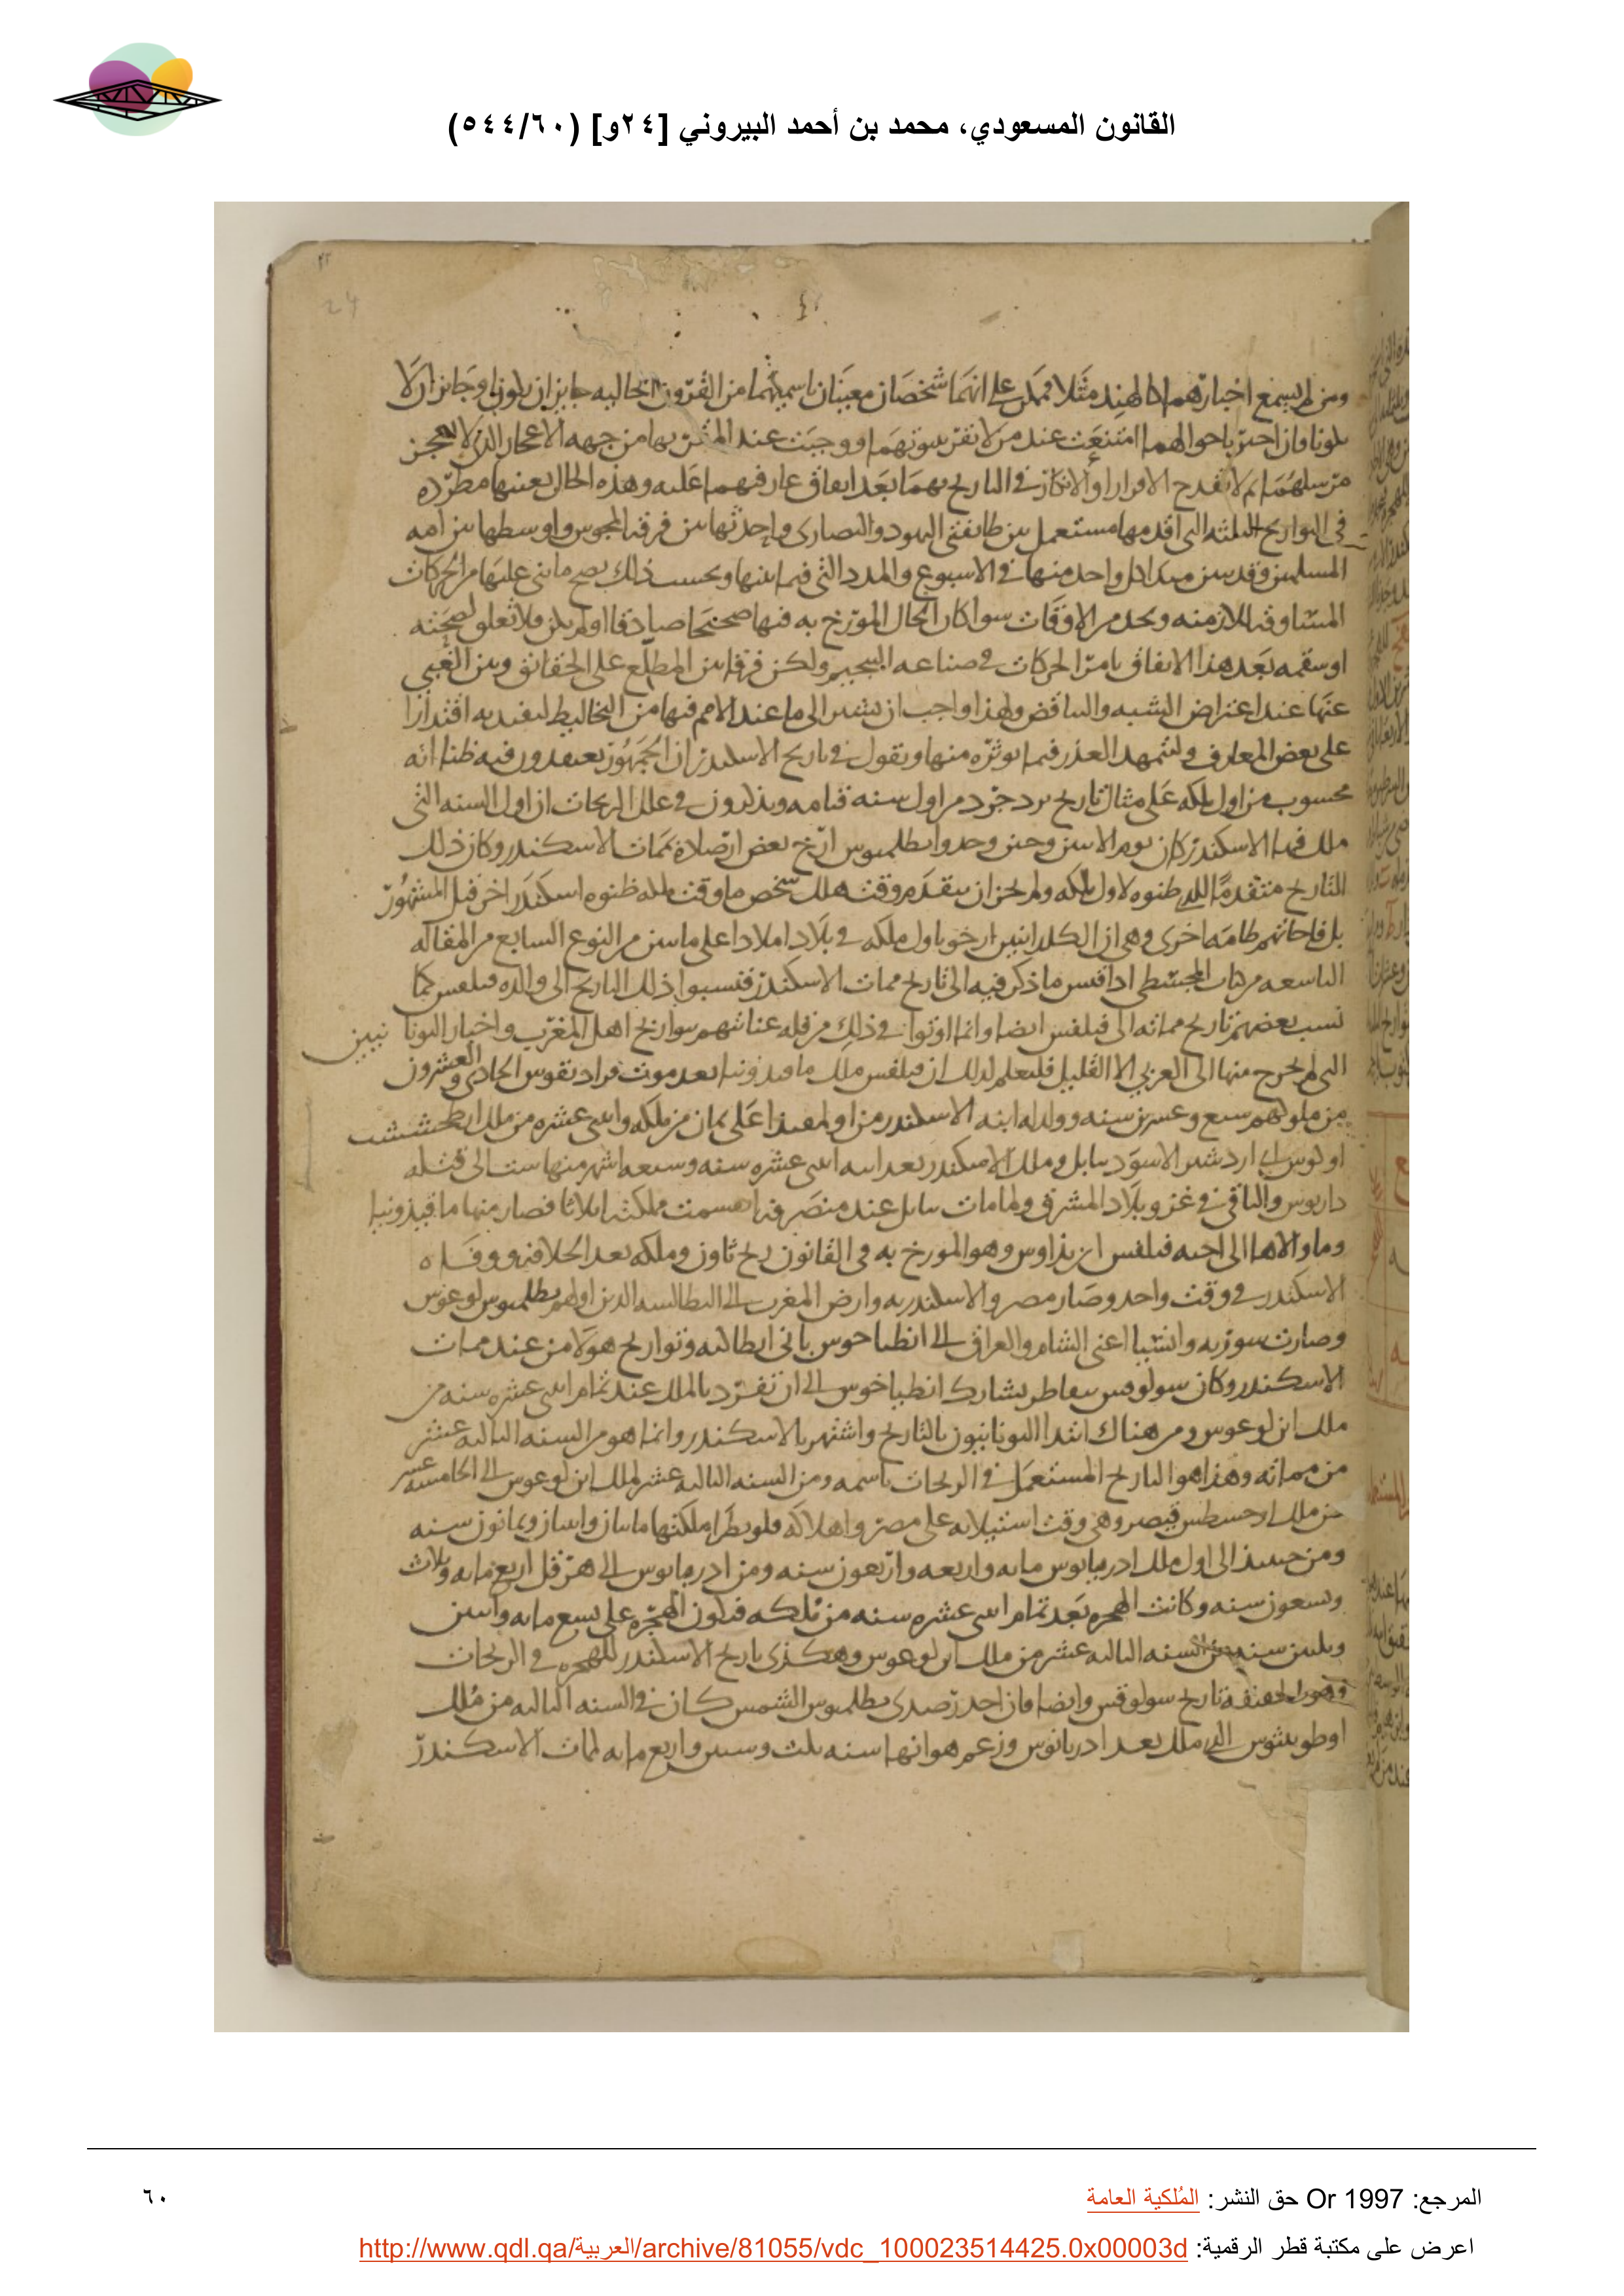 القانون المسعودي، محمد بن أحمد البيروني [٢٤و] (٥٤٤/٦٠)
24
ومن لم يسمع اخبارهما كالهند مثلا فممكن على انهما شخصان معينان باسميهما من القرون الخالية جايز ان يكونا وجايز ان لا
يكونا فان اخبر باحوالهما امتنعت عند من لا يقر بنبوتهما ووجبت عند المقر بها من جهه الاعجاز الذي لا يعجز
مرسلهما ثم لا يقدح الاقرار او الانكار في التاريخ بهما بعد اتفاق عارفيهما عليه وهذه الحال بعينها مطرده
في التواريخ الثلثه التي اقدمها مستعمل بين طايفتي اليهود والنصارى واحدثها بين فرقه المجوس واوسطها بين امه
المسلمين وقد بين مبدا كل واحد منها في الاسبوع والمدد التي فيما بينها وبحسب ذلك يصح ما بني عليها من الحركات
المتساوقه للازمنه وبحد من الاوقات سوا كان الحال المورخ به فيها صحيحا صادقا او لم يكن فلا تعلق لصحته
او سقمه بعد هذا الاتفاق بامر الحركات في صناعه التنجيم ولكن فرقا بين المطلع على الحقائق وبين الغبي
عنها عند اعتراض الشبه والتناقض ولهذا واجب ان نشير الى ما عند الامم فيها من التخاليط لتفيد به اقتدارا
على بعض المعارف وليتمهد العذر فيما نوثره منها ونقول في تاريخ الاسكندر ان الجمهور يعتقدون فيه ظنا انه
محسوب من اول ملكه على مثال تاريخ يزدجرد من اول سنه قيامه ويذكرون في علل الزيجات ان اول السنه التي
ملك فيها الاسكندر كان يوم الاثنين وحين وجدوا بطلميوس ارخ بعض ارصاده بممات الاسكندر وكان ذلك
التاريخ متقدما للذي ظنوه لاول ملكه ولم يجز ان يتقدم وقت هلك شخص ما وقت ملكه ظنوه اسكندر اخر قبل المشهور
بل فاجاتهم طامه اخرى وهي ان الكلدانيين ارخوا باول ملكه في بلاد املادا على ما بين من النوع السابع من المقاله
التاسعه من كتاب المجسطي اذا قيس ما ذكر فيه الى تاريخ ممات الاسكندر فنسبوا ذلك التاريخ الى والده فيلفس كما
نسب بعضهم تاريخ مماته الى فيلفس ايضا وانما اوتوا في ذلك من قله عنايتهم بتواريخ اهل المغرب واخبار اليونانيين
التي لم يخرج منها الى العربي الا القليل فليعلم لذلك ان فيلفس ملك ماقيدونيا بعد موت فرادنقوس الحادي والعشرون
من ملوكهم سبع وعشرين سنه وولد له ابنه الاسكندر من اولمفيدا على ثمان من ملكه واثني عشره من ملك ارطخششت
اوخوس اي اردشير الاسود ببابل وملك الاسكندر بعد ابيه اثني عشره سنه وسبعه اشهر منها ست الى قتله
داريوس والباقي في غزو بلاد المشرق ولما مات ببابل عند منصرفه انقسمت مملكته اثلاثا فصار منها ماقيذونيا
وما والاها الى اخيه فيلفس اريذاوس وهو المورخ به في القانون زيج ثاون وملكه بعد الخلافه ووفاه
الاسكندر في وقت واحد وصار مصر والاسكندريه وارض المغرب الى البطالسه الذين اولهم بطلميوس لوغوس
وصارت سوريه واشيا اعني الشام والعراق الى انطياخوس باني انطاكيه وتواريخ هولا من عند ممات
الاسكندر وكان سولوقس نيقاطر يشارك انطياخوس الى ان تفرد بالملك عند تمام اثني عشره سنه من
ملك ابن لوغوس ومن هناك ابتدا اليونانيون بالتاريخ واشتهر بالاسكندر وانما هو من السنه الثالثه عشر
من مماته وهذا هو التاريخ المستعمل في الزيجات باسمه ومن السنه الثالثه عشر لملك ابن لوغوس الى الخامسه عشر
من ملك اوجسطس قيصر وهي وقت استيلائه على مصر واهلاكه قلوبطرا ملكتها مايتان واثنان وثمانون سنه
ومن حينئذ الى اول ملك ادريانوس مايه واربعه واربعون سنه ومن ادريانوس الى هرقل اربع مايه وثلاث
وتسعون سنه وكانت الهجره بعد تمام اثني عشره سنه من ملكه فتكون الهجره على تسع مايه واثنين
وثلثين سنه من السنه الثالثه عشر من ملك ابن لوغوس وهكذى تاريخ الاسكندر للهجره في الزيجات
وهو بالحقيقه تاريخ سولوقس وايضا فان احد رصدي بطلميوس الشمس كان في السنه الثالثه من ملك
اوطونينوس الذي ملك بعد ادريانوس وزعم هو انها سنه ثلث وستين واربع مايه لممات الاسكندر
المرجع: Or 1997 حق النشر: المُلكية العامة
٦٠
اعرض على مكتبة قطر الرقمية: http://www.qdl.qa/العربية/archive/81055/vdc_100023514425.0x00003d